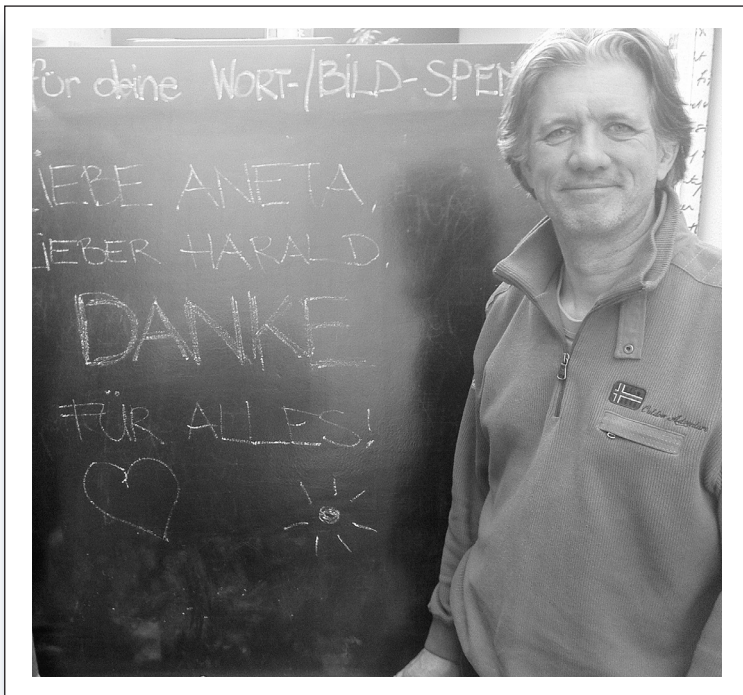 für deine WORT-/BILD-SPEN
IEBE ANETA,
IEBER HARALD,
DANKE
FÜR ALLES!